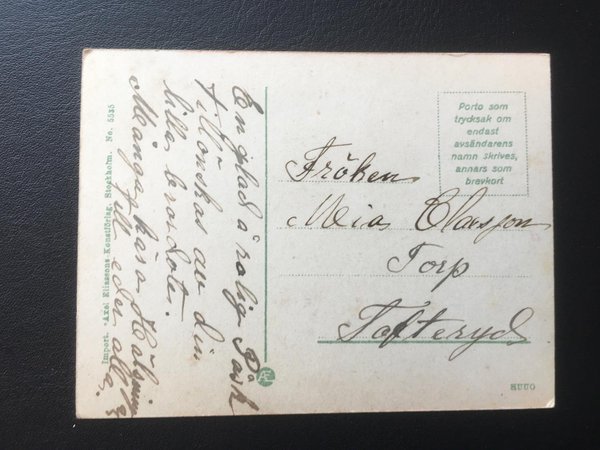 En glad o rolig Påsk
tillönskas av din
lilla brorsdotr.
Många kära Hälsnin
Till eder alla.
Import. "Axel Eliassons Konstförlag, Stockholm. No. 5535
Porto som
trycksak om
endast
avsändarens
namn skrives,
annars som
brevkort
Fröken
Mia Claesson
Torp
Tofteryd
HUUO